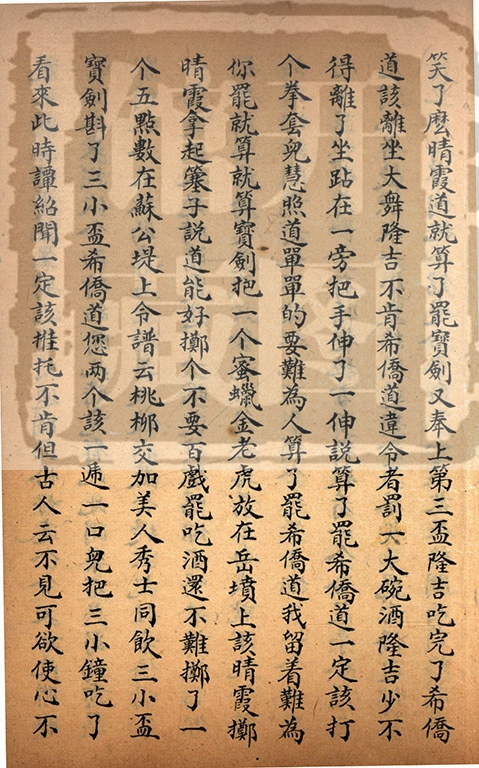 笑了麽晴霞道就算了罷寳劍又奉上第三盃隆吉吃完了希僑
道該離坐大舞隆吉不肯希僑道違令者罰一大碗酒隆吉少不
得離了坐跕在一旁把手伸了一伸説算了罷希僑道一定該打
个拳套兒慧照道單單的要難為人算了罷希僑道我留着難為
你罷就算就算寳劍把一个蜜蠟金老虎放在岳墳上該晴霞擲
晴霞拿起籌子説道能好擲个不要百戲罷吃酒還不難擲了一
个五點數在蘇公堤上令譜云桃柳交加美人秀士同飲三小盃
寳劍斟了三小盃希僑道您两个該一遞一口兒把三小鐘吃了
看來此時譚紹聞一定該推托不肯但古人云不見可欲使心不